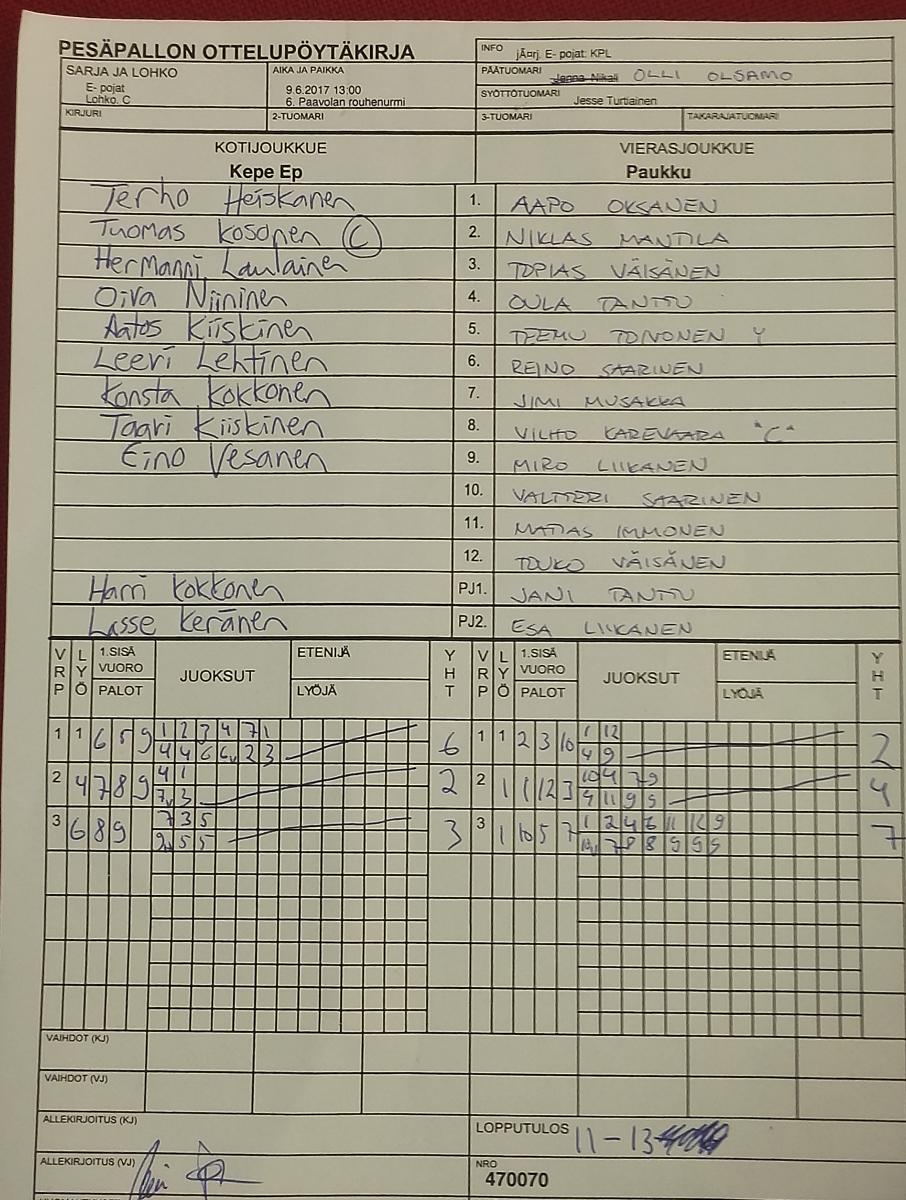 PESÄPALLON OTTELUPÖYTÄKIRJA
INFO järj. E- pojat: KPL
SARJA JA LOHKO
E- pojat
Lohko. C
AIKA JA PAIKKA
9.6.2017 13:00
6. Paavolan rouhenurmi
PÄÄTUOMARI Jenna Nikali OLLI OLSAMO
SYÖTTÖTUOMARI Jesse Turtiainen
KIRJURI
2-TUOMARI
3-TUOMARI
TAKARAJATUOMARI
KOTIJOUKKUE
Kepe Ep
VIERASJOUKKUE
Paukku
Terho Heiskanen 1. AAPO OKSANEN
Tuomas Kosonen C 2. NIKLAS MANTILA
Hermanni Laulainen 3. TOPIAS VÄISÄNEN
Oiva Niininen 4. OULA TANTTU
Aatos Kiiskinen 5. TEEMU TOIVONEN
Leevi Lehtinen 6. REINO SAARINEN
Konsta Kokkonen 7. JIMI MUSAKKA
Taari Kiiskinen 8. VILHO KAREVAARA "C"
Eino Vesanen 9. MIRO LIIKANEN
10. VALTTERI SAARINEN
11. MATIAS IMMONEN
12. TOUKO VÄISÄNEN
Harri Kokkonen PJ1. JANI TANTTU
Lasse Keränen PJ2. ESA LIIKANEN
VRP LYÖ 1.SISÄ VUORO PALOT JUOKSUT ETENIJÄ LYÖJÄ YHT VRP LYÖ 1.SISÄ VUORO PALOT JUOKSUT ETENIJÄ LYÖJÄ YHT
1 1 6 5 9 1 2 3 4 7 1 6 1 1 2 3 10 1 12 2
4 4 6 6v 2 3 4 9
2 4 7 8 9 4 1 2 2 1 1 12 3 10 4 7 9 4
7v 3 9 11 9 9
3 6 8 9 7 3 5 3 3 1 10 5 7 1 2 4 6 11 12 9 7
9v 5 5 10v 7 8 8 9 9 9
VAIHDOT (KJ)
VAIHDOT (VJ)
ALLEKIRJOITUS (KJ)
LOPPUTULOS 11-13
ALLEKIRJOITUS (VJ)
NRO
470070